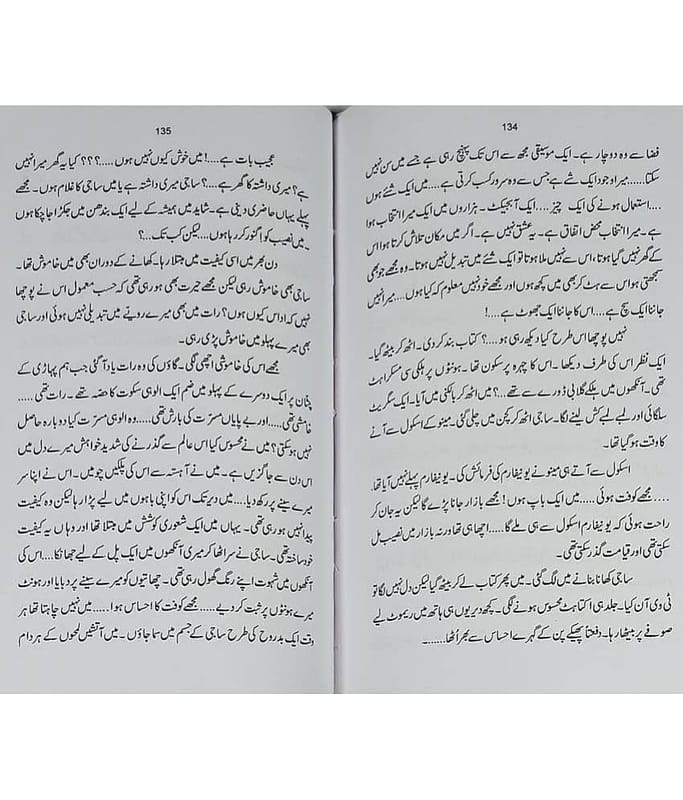 134
فضا سے وہ دوچار ہے۔ ایک موسیقی مجھ سے اس تک پہنچ رہی ہے جسے میں سن نہیں
سکتا.....میرا وجود ایک شے ہے جس سے وہ سرور کسب کرتی ہے.....میں ایک شئے ہوں
....استعمال ہونے کی ایک چیز.....ایک آبجیکٹ۔ ہزاروں میں ایک میرا انتخاب ہوا
ہے۔ میرا انتخاب محض اتفاق ہے۔ یہ عشق نہیں ہے۔ اگر میں مکان تلاش کرتا ہوا اس
کے گھر نہیں گیا ہوتا، اس سے نہیں ملا ہوتا تو ایک شئے میں تبدیل نہیں ہوتا۔ وہ مجھے جو بھی
سمجھتی ہو اس سے ہٹ کر بھی میں کچھ ہوں اور مجھے خود نہیں معلوم کہ کیا ہوں....میرا نہیں
جاننا ایک سچ ہے....اس کا جاننا ایک جھوٹ ہے....!
نہیں پوچھا اس طرح کیا دیکھ رہی ہو....؟ کتاب بند کر دی۔ اٹھ کر بیٹھ گیا۔
ایک نظر اس کی طرف دیکھا۔ اس کا چہرہ پر سکون تھا۔ ہونٹوں پر ہلکی سی مسکراہٹ
تھی۔ آنکھوں میں ہلکے گلابی ڈورے سے تھے....؟ میں اٹھ کر بالکنی میں آیا۔ ایک سگریٹ
سلگائی اور لمبے لمبے کش لینے لگا۔ ساجی اٹھ کر کچن میں چلی گئی۔ مینو کے اسکول سے آنے
کا وقت ہو گیا تھا۔
اسکول سے آتے ہی مینو نے یونیفارم کی فرمائش کی۔ یونیفارم پہلے نہیں آیا تھا
....مجھے کوفت ہوئی.....میں ایک باپ ہوں! مجھے بازار جانا پڑے گا لیکن یہ جان کر
راحت ہوئی کہ یونیفارم اسکول سے ہی ملے گا....اچھا ہی تھا ورنہ بازار میں نصیب مل
سکتی تھی اور قیامت گذر سکتی تھی۔
ساجی کھانا بنانے میں لگ گئی۔ میں پھر کتاب لے کر بیٹھ گیا لیکن دل نہیں لگا تو
ٹی وی آن کیا۔ جلد ہی اکتاہٹ محسوس ہونے لگی۔ کچھ دیر یوں ہی ہاتھ میں ریموٹ لیے
صوفے پر بیٹھا رہا۔ دفعتاً پھیکے پن کے گہرے احساس سے بھر اُٹھا.......
135
عجیب بات ہے....! میں خوش کیوں نہیں ہوں.....؟؟؟ کیا یہ گھر میرا نہیں
ہے؟ میری داشتہ کا گھر ہے....؟ ساجی میری داشتہ ہے یا میں ساجی کا غلام ہوں۔ مجھے
پہلے یہاں حاضری دینی ہے۔ شاید میں ہمیشہ کے لیے ایک بندھن میں جکڑا جا چکا ہوں
۔ میں نصیب کو اِگنور کر رہا ہوں....لیکن کب تک....؟
دن بھر میں اسی کیفیت میں مبتلا رہا۔ کھانے کے دوران بھی میں خاموش تھا۔
ساجی بھی خاموش رہی لیکن مجھے حیرت بھی ہو رہی تھی کہ حسب معمول اس نے پوچھا
نہیں کہ اداس کیوں ہوں؟ رات میں بھی میرے رویّے میں تبدیلی نہیں ہوئی اور ساجی
بھی میرے پہلو میں خاموش پڑی رہی۔
مجھے اس کی خاموشی اچھی لگی۔ گاؤں کی وہ رات یاد آ گئی جب ہم پہاڑی کے
چٹان پر ایک دوسرے کے پہلو میں ضم ایک الوہی سکوت کا حصّہ تھے۔ رات تھی.....
خامشی تھی.....اور بے پایاں مسرّت کی بارش تھی.....وہ الوہی مسرّت کیا دوبارہ حاصل
نہیں ہو سکتی؟ میں نے محسوس کیا اس عالم سے گذرنے کی شدید خواہش میرے دل میں
اس دن سے جاگزیں ہے۔ میں نے آہستہ سے اس کی پلکیں چومیں۔ اس نے اپنا سر
میرے سینے پر رکھ دیا....میں دیر تک اس کو اپنی باہوں میں لیے پڑا رہا لیکن وہ کیفیت
پیدا نہیں ہو رہی تھی۔ یہاں میں ایک شعوری کوشش میں مبتلا تھا اور وہاں یہ کیفیت
خود ساختہ تھی۔ ساجی نے سر اٹھا کر میری آنکھوں میں ایک پل کے لیے جھانکا....اس کی
آنکھوں میں شہوت اپنے رنگ گھول رہی تھی۔ چھاتیوں کو میرے سینے پر دبایا اور ہونٹ
میرے ہونٹوں پر ثبت کر دیے.....مجھے کوفت کا احساس ہوا.....میں نہیں چاہتا تھا ہر
وقت ایک بدروح کی طرح ساجی کے جسم میں سما جاؤں۔ میں آتشیں لمحوں کے ہر دام